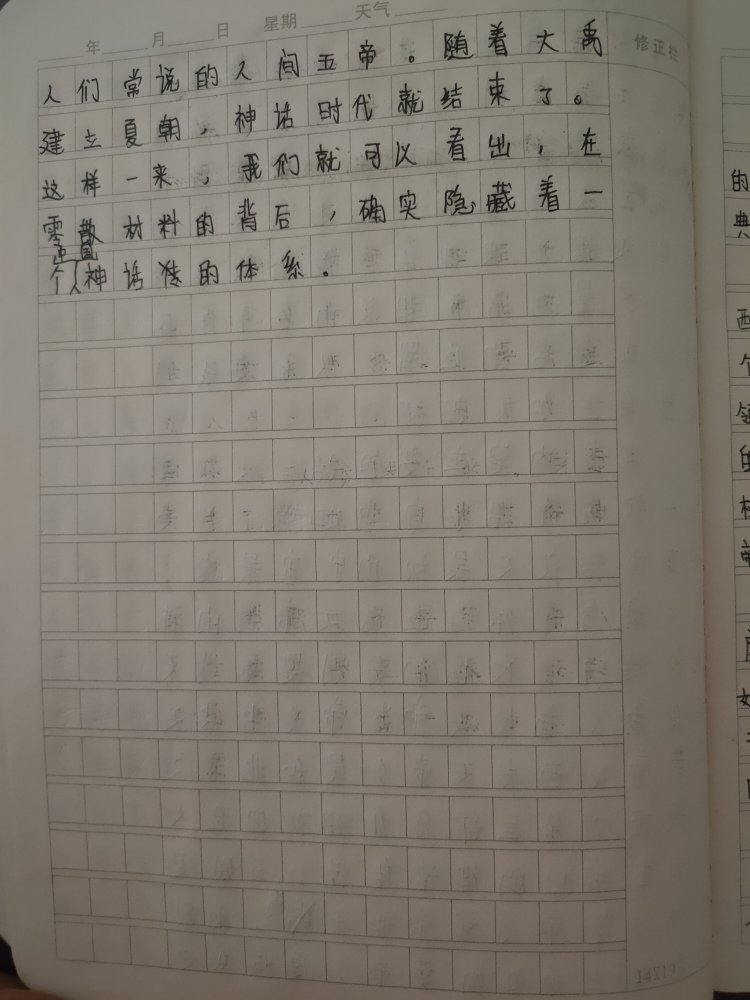 年 月 日 星期 天气
修正栏
人们常说的人间五帝。随着大禹
建立夏朝，神话时代就结束了。
这样一来，我们就可以看出，在
零散材料的背后，确实隐藏着一
个中国神话传的体系。
的
典
西
个
14219